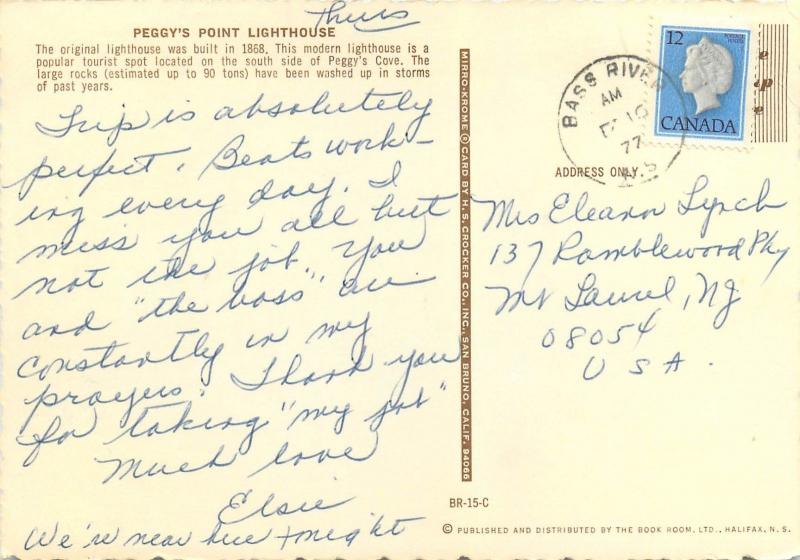 Thurs
PEGGY'S POINT LIGHTHOUSE
The original lighthouse was built in 1868. This modern lighthouse is a
popular tourist spot located on the south side of Peggy's Cove. The
large rocks (estimated up to 90 tons) have been washed up in storms
of past years.
Trip is absolutely
perfect. Beats work-
ing every day. I
miss you all but
not the job. You
and "the boss" are
constantly in my
prayers. Thank you
for taking "my job"
Much love
Elsie
We're near here tonight
MIRRO-KROME® CARD BY H. S. CROCKER CO., INC., SAN BRUNO, CALIF. 94066
12
CANADA
BASS RIVER
AM
77
N.S
ADDRESS ONLY.
Mrs Eleanor Lynch
137 Ramblewood Pky
Mt Laurel, NJ
08054
USA.
BR-15-C
© PUBLISHED AND DISTRIBUTED BY THE BOOK ROOM, LTD., HALIFAX, N. S.